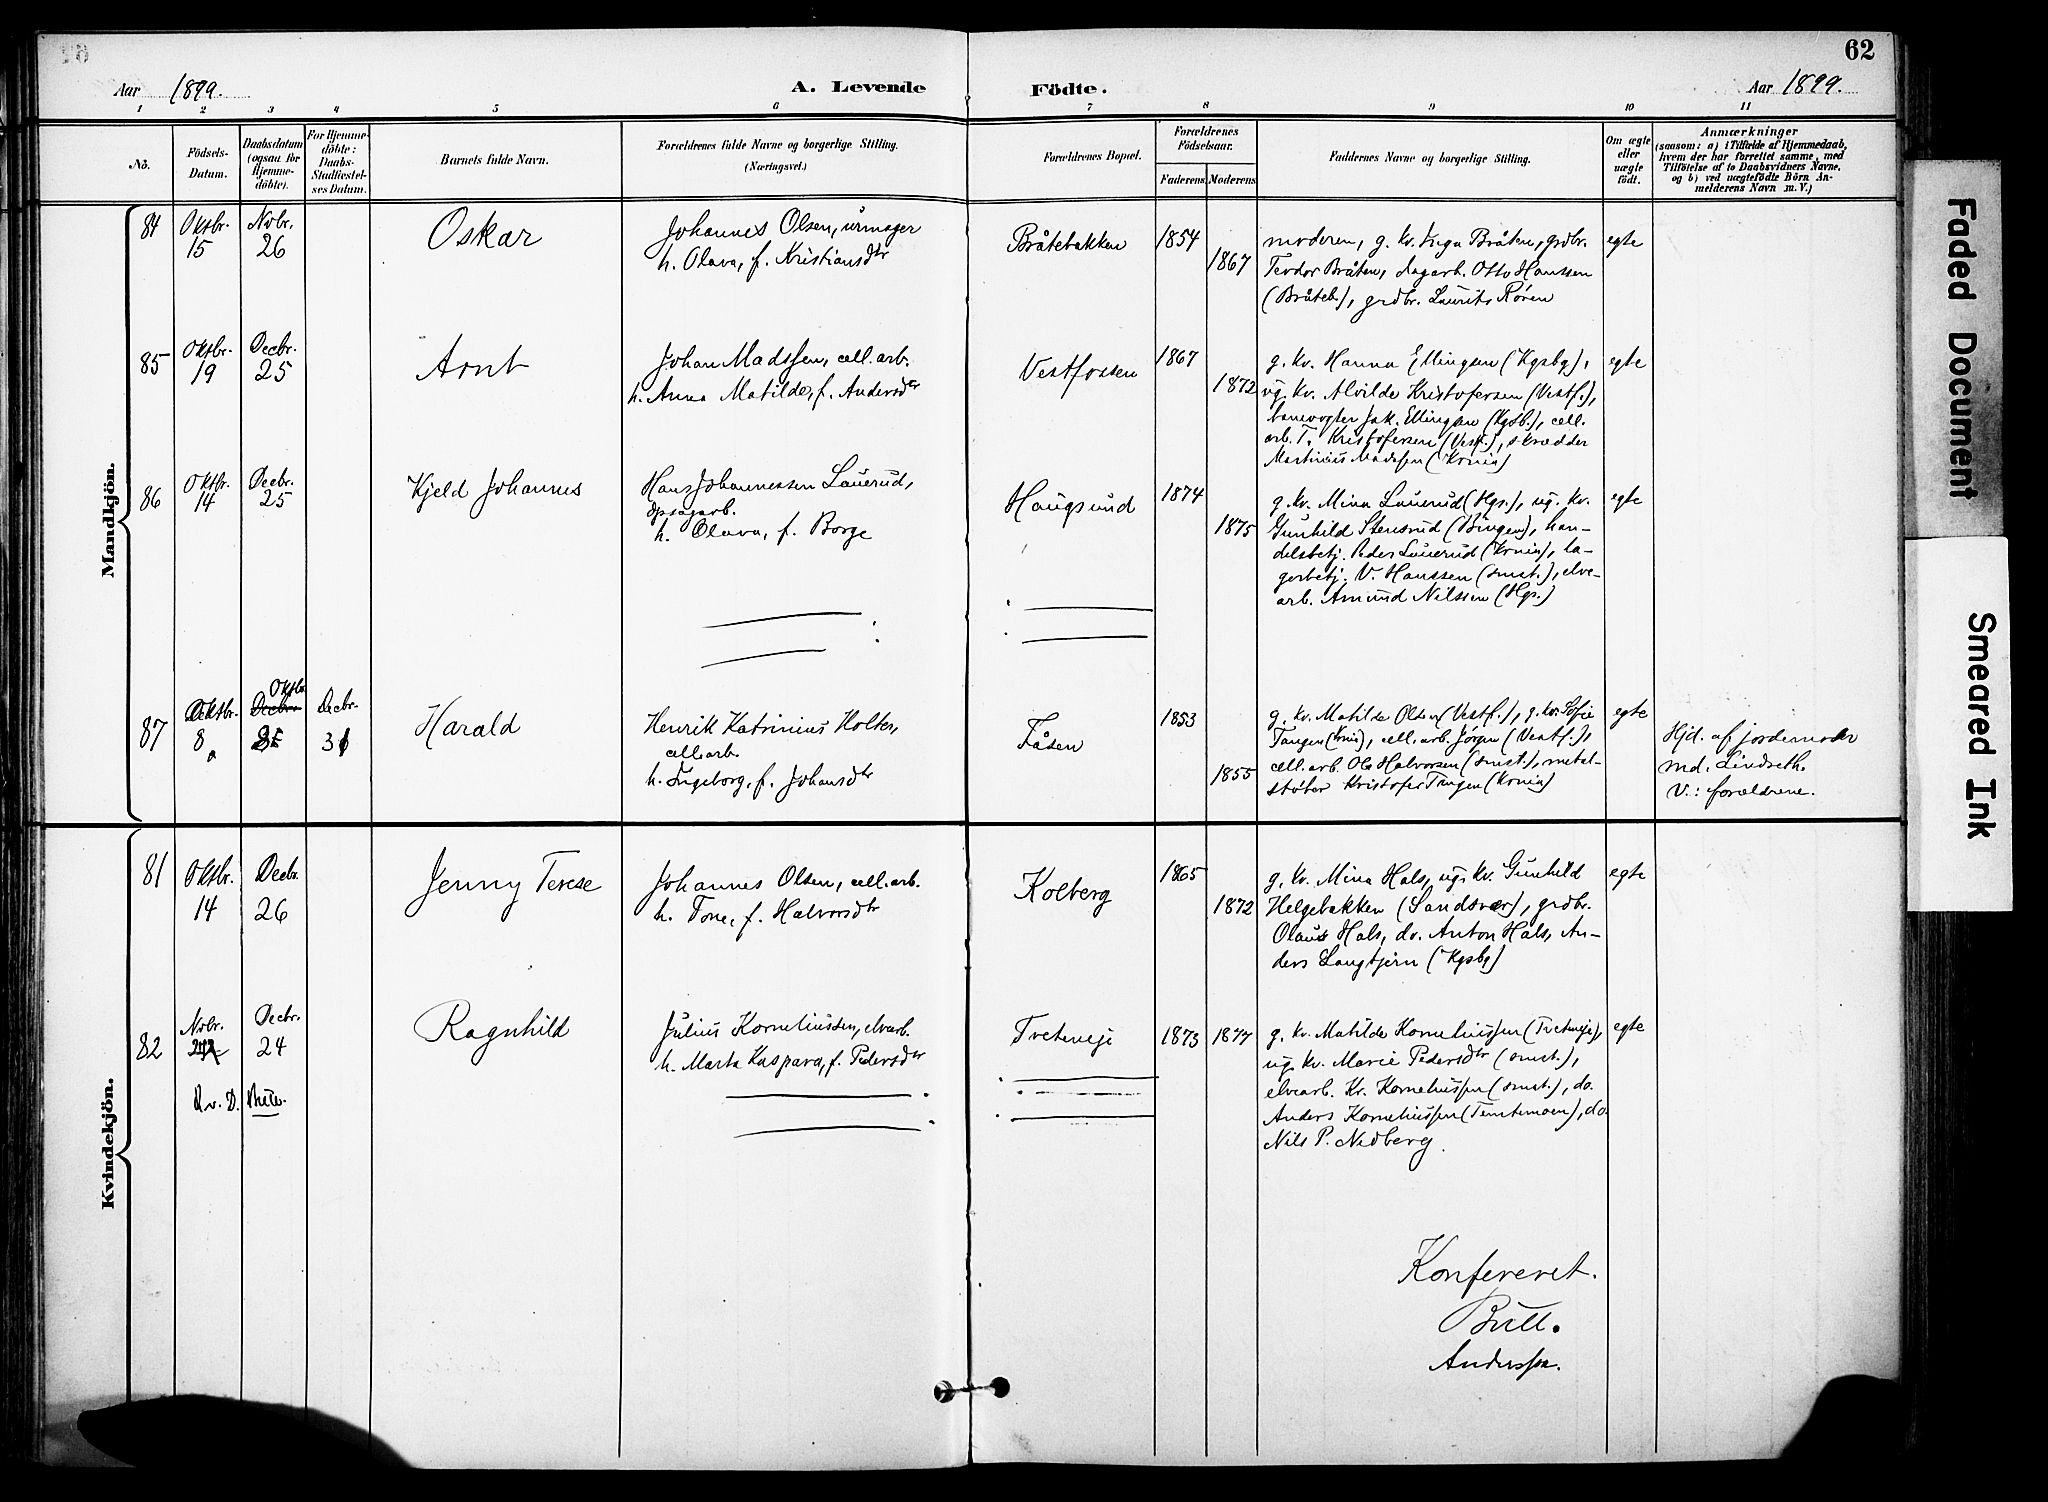 62
Aar 1899.
A. Levende Födte.
Aar 1899.
1 2 3 4 5 6 7 8 9 10 11
No.
Födsels-Datum.
Daabsdatum (ogsaa for Hjemme-döbte).
For Hjemme-döbte: Daabs-Stadfæstel-ses Datum.
Barnets fulde Navn.
Forældrenes fulde Navne og borgerlige Stilling. (Næringsvei.)
Forældrenes Bopæl.
Forældrenes Födselsaar.
Faderens. Moderens.
Faddernes Navne og borgerlige Stilling.
Om ægte eller uægte födt.
Anmærkninger
(saasom: a) i Tilfælde af Hjemmedaab,
hvem der har forrettet samme, med
Tilföielse af to Daabsvidners Navne,
og b) ved uægtefödte Börn An-
melderens Navn m. V.)
Mandkjön.
84 Oktbr. 15 Novbr. 26
Oskar
Johannes Olsen, urmager
h. Olava, f. Kristiansdtr
Bråtebakken
1854
1867
moderen, g. kv. Inga Bråten, grdbr.
Tevdor Bråten, dagarb. Otto Hanssen
(Bråteb.), grdbr. Laurits Røren
egte
85 Oktbr. 19 Decbr. 25
Arnt
Johan Madssen, cell. arb.
h. Anna Matilde, f. Andersdtr
Vestfossen
1867
1872
g. kv. Hanna Ellingsen (Kgsbg),
ug. kv. Alvilde Kristofersen (Vestf.),
banevogter Jak. Ellingsen (Kgsb.), cell.
arb. T. Kristofersen (Vestf.), skrædder
Martinius Madssen (Krnia)
egte
86 Oktbr. 14 Decbr. 25
Kjeld Johannes
Hans Johannessen Lauerud,
dpsagarb.
h. Olava, f. Borge
Haugsund
1874
1875
g. kv. Mina Lauerud (Hgs.), ug. kv.
Gunhild Stensrud (Bingen), han-
delsbetj. Peder Lauerud (Krnia), la-
gerbetj. V. Hanssen (smst.), elve-
arb. Amund Nilssen (Hgs.)
egte
87 Oktbr. 8 Oktbr. Decbr. 31
Harald
Henrik Katrinius Holter,
cell. arb.
h. Ingeborg, f. Johansdtr
Fåsen
1853
1855
g. kv. Matilde Olsen (Vestf.), g. kv. Sofie
Tangen (Krnia), cell. arb. Jørgen (Vestf.),
cell. arb. Ole Halvorsen (smst.), metal-
støber Kristofer Tangen (Krnia)
egte
Hjd. af jordemoder
md. Lindseth.
V.: forældrene.
Kvindekjön.
81 Oktbr. 14 Decbr. 26
Jenny Terese
Johannes Olsen, cell. arb.
h. Tone, f. Halvorsdtr
Kolberg
1865
1872
g. kv. Mina Hals, ug. kv. Gunhild
Helgebakken (Sandsvær), grdbr.
Olaus Hals, do. Anton Hals, An-
ders Langtjern (Kgsbg)
egte
82 Novbr. Decbr. 24
Ragnhild
Julius Korneliussen, elvearb.
h. Marta Kaspara, f. Pedersdtr
Tvetereje
1873 1877
g. kv. Matilde Korneliussen (Tvetereje),
ug. kv. Marie Pedersdtr (smst.),
elvearb. Kr. Korneliussen (smst.), do.
Anders Korneliussen (Temtemoen), do.
Nils P. Nedberg.
egte
Konfereret.
Bull.
Anderssen.
Faded Document
Smeared Ink